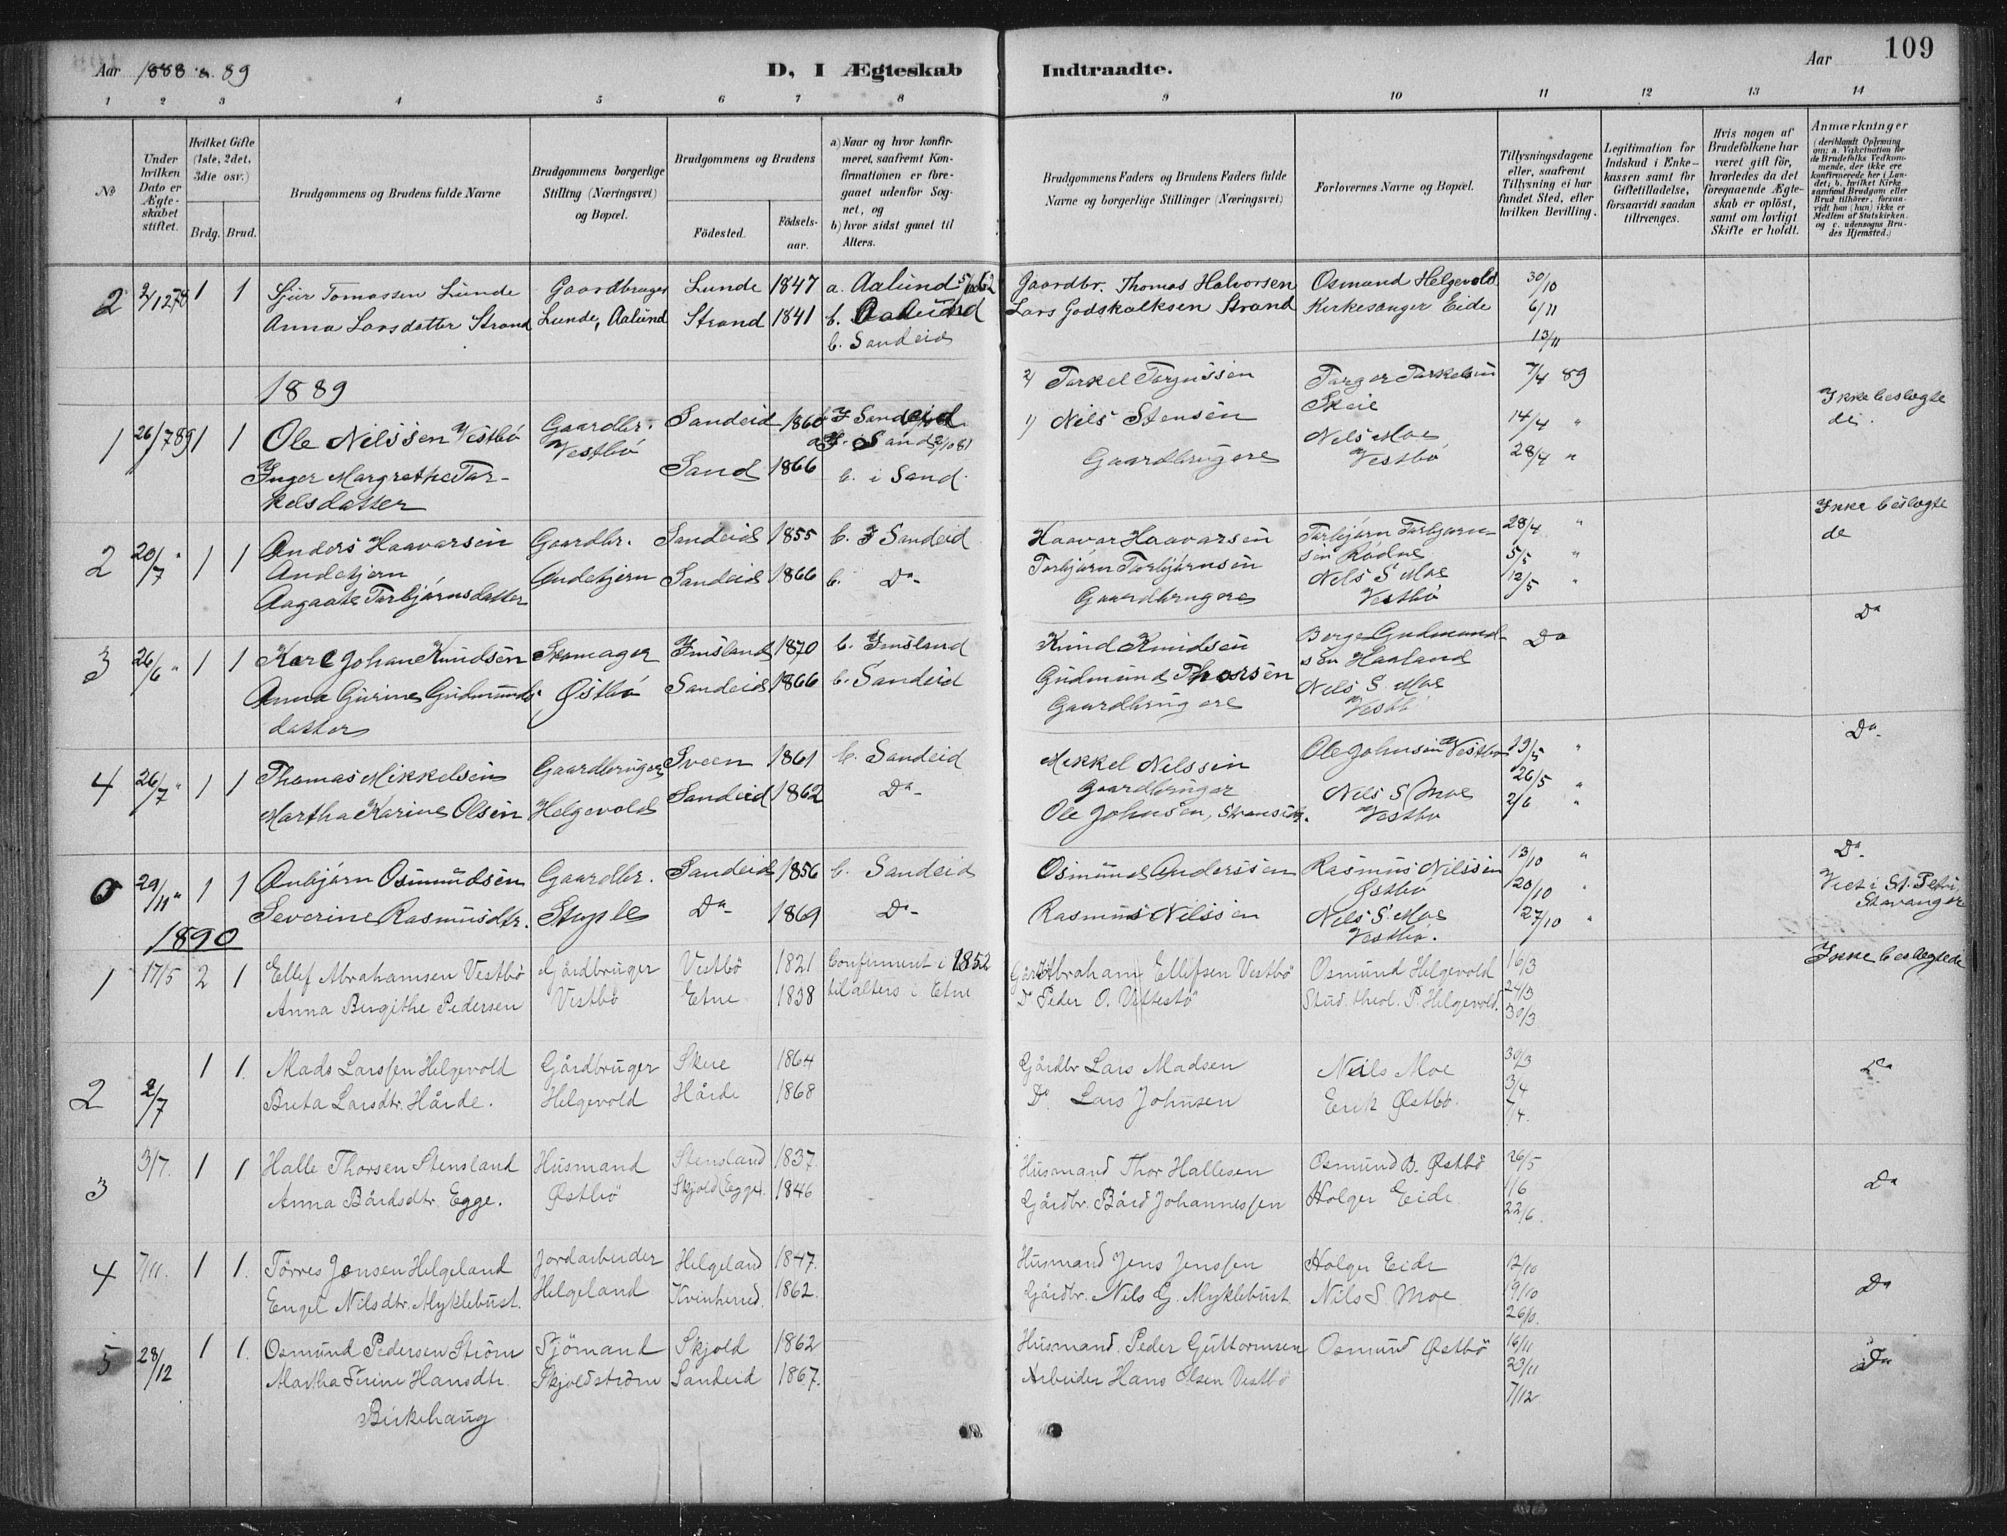 Aar 1888 & 89
D, I Ægteskab Indtraadte.
Aar 109
1 2 3 4 5 6 7 8 9 10 11 12 13 14
No
Under hvilken Dato er Ægteskabet stiftet.
Hvilket Gifte (1ste, 2det, 3die osv.)
Brdg. Brud.
Brudgommens og Brudens fulde Navne
Brudgommens borgerlige Stilling (Næringsvei) og Bopæl.
Brudgommens og Brudens
Fødested.
Fødselsaar.
a) Naar og hvor konfirmeret, saafremt Konfirmationen er foregaaet udenfor Sognet, og
b) hvor sidst gaaet til Alters.
Brudgommens Faders og Brudens Faders fulde Navne og borgerlige Stillinger (Næringsvei)
Forlovernes Navne og Bopæl.
Tillysningsdagene eller, saafremt Tillysning ei har fundet Sted, efter hvilken Bevilling.
Legitimation for Indskud i Enkekassen samt for Giftetilladelse, forsaavidt saadan tiltrænges.
Hvis nogen af Brudefolkene har været gift før, hvorledes da det foregaaende Ægteskab er opløst, samt om lovligt Skifte er holdt.
Anmærkninger (deriblandt Oplysning om: a. Vakcination for de Brudefolks Vedkommende, der ikke ere konfirmerede her i Landet; b. hvilket Kirkesamfund Brudgom eller Brud tilhører, forsaavidt han (hun) ikke er Medlem af Statskirken, og c. udensogns Brudes Hjemsted.)
2 2/12 1 1 Sjur Tomassen Lunde Gaardbruger Lunde 1847 a. Aalund Gaardbr. Thomas Halvorsen Osmund Helgevold 30/10
Anna Larsdatter Strand Lunde, Aalund Strand 1841 b. Aalund Lars Godskalksen Strand Kirkesanger Eide 6/11
b. Sandeid 13/11
1889
2) Torkel Torgussen Torger Torkelsen Skeie 7/4 89
1 26/7 89 1 1 Ole Nilssen Vestbø Gaardbr. Vestbø Sandeid 1860 b. I Sandeid 1) Nils Stensen Nils Moe Vestbø 14/4 " Ikke beslægtede.
Inger Margrethe Torkelsdatter Sand 1866 b. i Sand Gaardbrugere 28/4 "
2 20/7 " 1 1 Anders Haavarsen Andebjern Gaardbr. Sandeid 1855 b. I Sandeid Haavar Haavarsen Torbjørn Torbjørnsen Rødne 28/4 " Ikke beslægtede
Aagaate Torbjørnsdatter Andebjern Sandeid 1866 b. Do Torbjørn Torbjørnsen Nils S. Moe 5/5 "
Gaardbrugere Vestbø 12/5 "
3 26/6 " 1 1 Karl Johan Knudsen Skomager Imsland 1870 b. Imsland Knud Knudsen Børge Gudmundsen Haaland Do Do
Anna Gurine Gudmundsdatter Østbø Sandeid 1866 b. Sandeid Gudmund Thorsen Nils S. Moe
Gaardbrugere Vestb
4 26/7 " 1 1 Thomas Mikkelsen Gaardbruger Sveen 1861 b. Sandeid Mikkel Nilssen Ole Johnsen Vestbø 19/5 " Do
Martha Karine Olsen Helgevold Sandeid 1862 Do Gaardbruger Nils S. Moe 26/5 "
Ole Johnsen, Vestbø 2/6 "
29/11 " 1 1 Anbjørn Osmundsen Gaardbr. Sandeid 1856 b. Sandeid Osmund Anderssen Rasmus Nilssen Østbø 13/10 " Do
Severine Rasmusdtr. Do 1869 Do Rasmus Nilssen Nils S. Moe Vestbø. 20/10 " Viet i St. Petri, Stavanger
27/10 "
1890
1 17/5 2 1 Ellef Abrahamsen Vestbø Gårdbruger Vestbø 1821 Confirmeret i 1852 Abraham Ellefsen Vestbø Osmund Helgevold 16/3 Ikke beslægtede
Anna Birgithe Pedersen Vestbø Etne 1838 til alters i Etne Do Peder O. Stud. theol. P. Helgevold. 24/3
30/3
2 2/7 1 1. Mads Larssen Helgevold Gårdbruger 1864 Gårdbr Lars Madsen Nils Moe 30/3 Do
Brita Larsdtr. Hårde. Helgevold Hårde 1868 Do Lars Johnsen Erik Østbø. 3/4
7/4.
3 3/7. 1 1 Halle Thorsen Stensland Husmand Stensland 1837. Husmand Thor Hallesen Osmund B. Østbø 26/5 Do
Anna Bårdsdtr. Egge. Østbø Skjold (Egge). 1846 Gårdbr. Bård Johannessen Holger Eide 1/6
22/6.
4 7/11. 1 1. Tørres Jensen Helgeland Jordarbeider Helgeland 1847. Husmand Jens Jenssen Holger Eide 12/10 Do
Engel Nilsdtr. Myklebust. Helgeland Kvinherred. 1862. Gårdbr. Nils G. Myklebust Nils S. Moe 19/10
26/10.
5 28/12 1 1. Osmund Pedersen Strøm Sjømand Skjold 1862 Husmand. Peder Guttormsen Osmund Østbø 16/11 Do
Martha Serine Hansdtr. Skjoldstrøm Sandeid 1867. Arbeider Hans Olsen Vestbø 23/11
Birkehaug 7/12